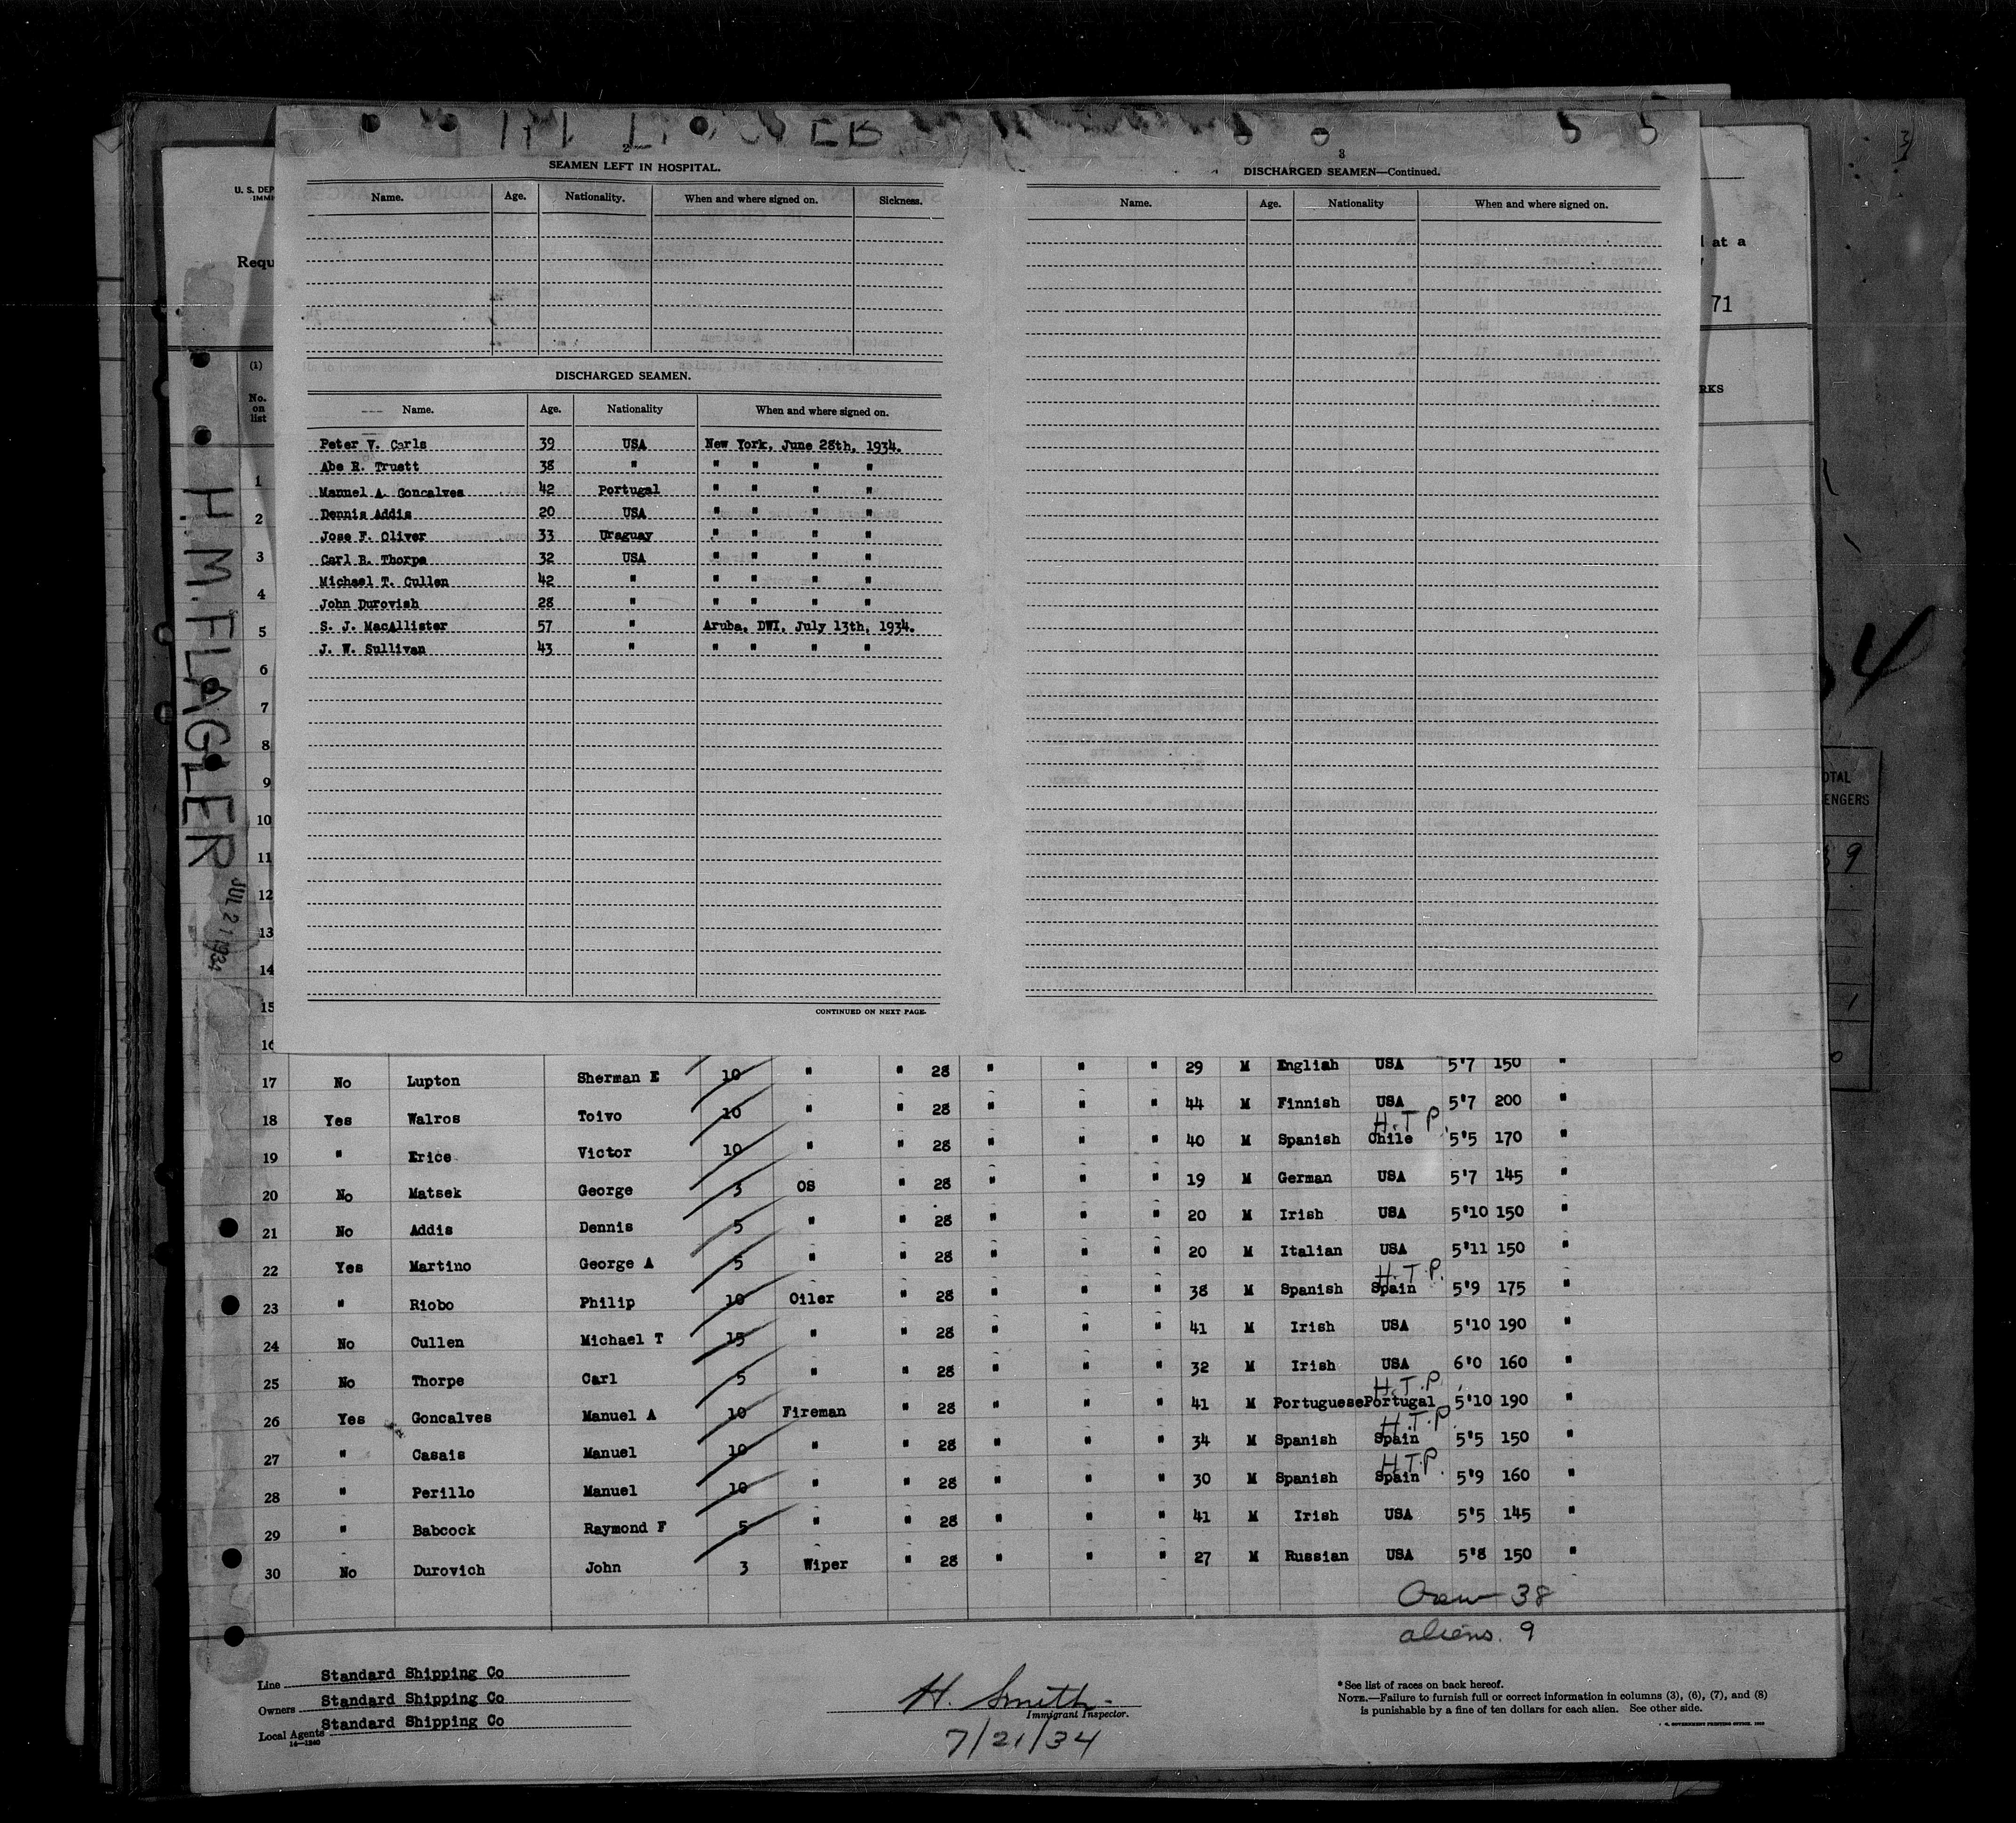 2
SEAMEN LEFT IN HOSPITAL.
Name. Age. Nationality. When and where signed on. Sickness.
DISCHARGED SEAMEN.
Name. Age. Nationality When and where signed on.
Peter V. Carls 39 USA New York, June 28th, 1934.
Abe R. Truett 38 " " " " "
Manuel A. Goncalves 42 Portugal " " " "
Dennis Addis 20 USA " " " "
Jose F. Oliver 33 Uraguay " " " "
Carl R. Thorpe 32 USA " " " "
Michael T. Cullen 42 " " " " "
John Durovish 28 " " " " "
S. J. MacAllister 57 " Aruba, DWI, July 13th, 1934.
J. W. Sullivan 43 " " " " "
CONTINUED ON NEXT PAGE.
3
DISCHARGED SEAMEN—Continued.
Name. Age. Nationality When and where signed on.
U. S. DEP
IMMI
Requ
at a
71
RKS
(1)
No.
on
list
1
2
3
4
5
6
7
8
9
10
11
12
13
14
15
16
H. M. FLAGLER
JUL 21 1934
4
OTAL
ENGERS
9
1
0
17 No Lupton Sherman E 10 " " 28 " " " 29 M English USA 5'7 150 "
18 Yes Walros Toivo 10 " " 28 " " " 44 M Finnish USA 5'7 200 "
H.T.P.
19 " Erice Victor 10 " " 28 " " " 40 M Spanish Chile 5'5 170 "
20 No Matsek George 3 OS " 28 " " " 19 M German USA 5'7 145 "
21 No Addis Dennis 5 " " 28 " " " 20 M Irish USA 5'10 150 "
22 Yes Martino George A 5 " " 28 " " " 20 M Italian USA 5'11 150 "
H.T.P.
23 " Riobo Philip 10 Oiler " 28 " " " 38 M Spanish Spain 5'9 175 "
24 No Cullen Michael T 15 " " 28 " " " 41 M Irish USA 5'10 190 "
25 No Thorpe Carl 5 " " 28 " " " 32 M Irish USA 6'0 160 "
H.T.P.
26 Yes Goncalves Manuel A 10 Fireman " 28 " " " 41 M Portuguese Portugal 5'10 190 "
H.T.P.
27 " Casais Manuel 10 " " 28 " " " 34 M Spanish Spain 5'5 150 "
H.T.P.
28 " Perillo Manuel 10 " " 28 " " " 30 M Spanish Spain 5'9 160 "
29 " Babcock Raymond F 5 " " 28 " " " 41 M Irish USA 5'5 145 "
30 No Durovich John 3 Wiper " 28 " " " 27 M Russian USA 5'8 150 "
Crew 38
aliens. 9
Line Standard Shipping Co
Owners Standard Shipping Co
Local Agents Standard Shipping Co
14—1240
H. Smith
Immigrant Inspector.
7/21/34
*See list of races on back hereof.
NOTE.—Failure to furnish full or correct information in columns (3), (6), (7), and (8)
is punishable by a fine of ten dollars for each alien. See other side.